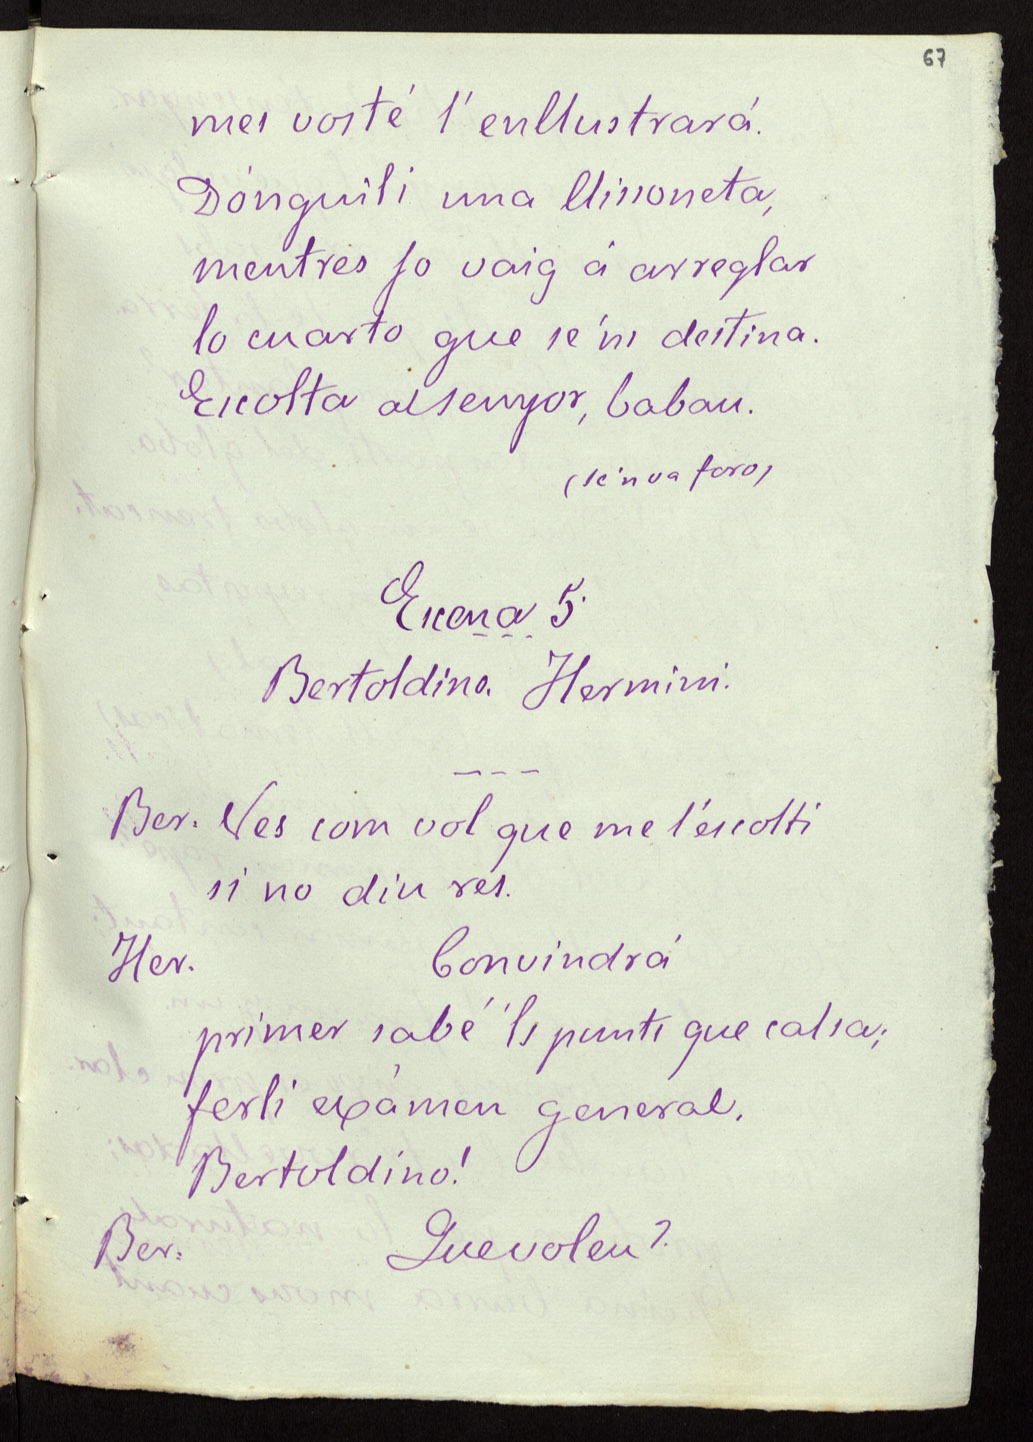 67
mes vosté l'enllustrará.
Dónguili una llissoneta,
mentres jo vaig á arreglar
lo cuarto que se'ns destina.
Escolta al senyor, babau.
(se'n va foro)
Escena 5ª
Bertoldino. Hermini.
Ber. Ves com vol que me l'escolti
si no diu res.
Her. Convindrá
primer sabé 'ls punts que calsa;
ferli exámen general.
Bertoldino!
Ber: Que voleu?